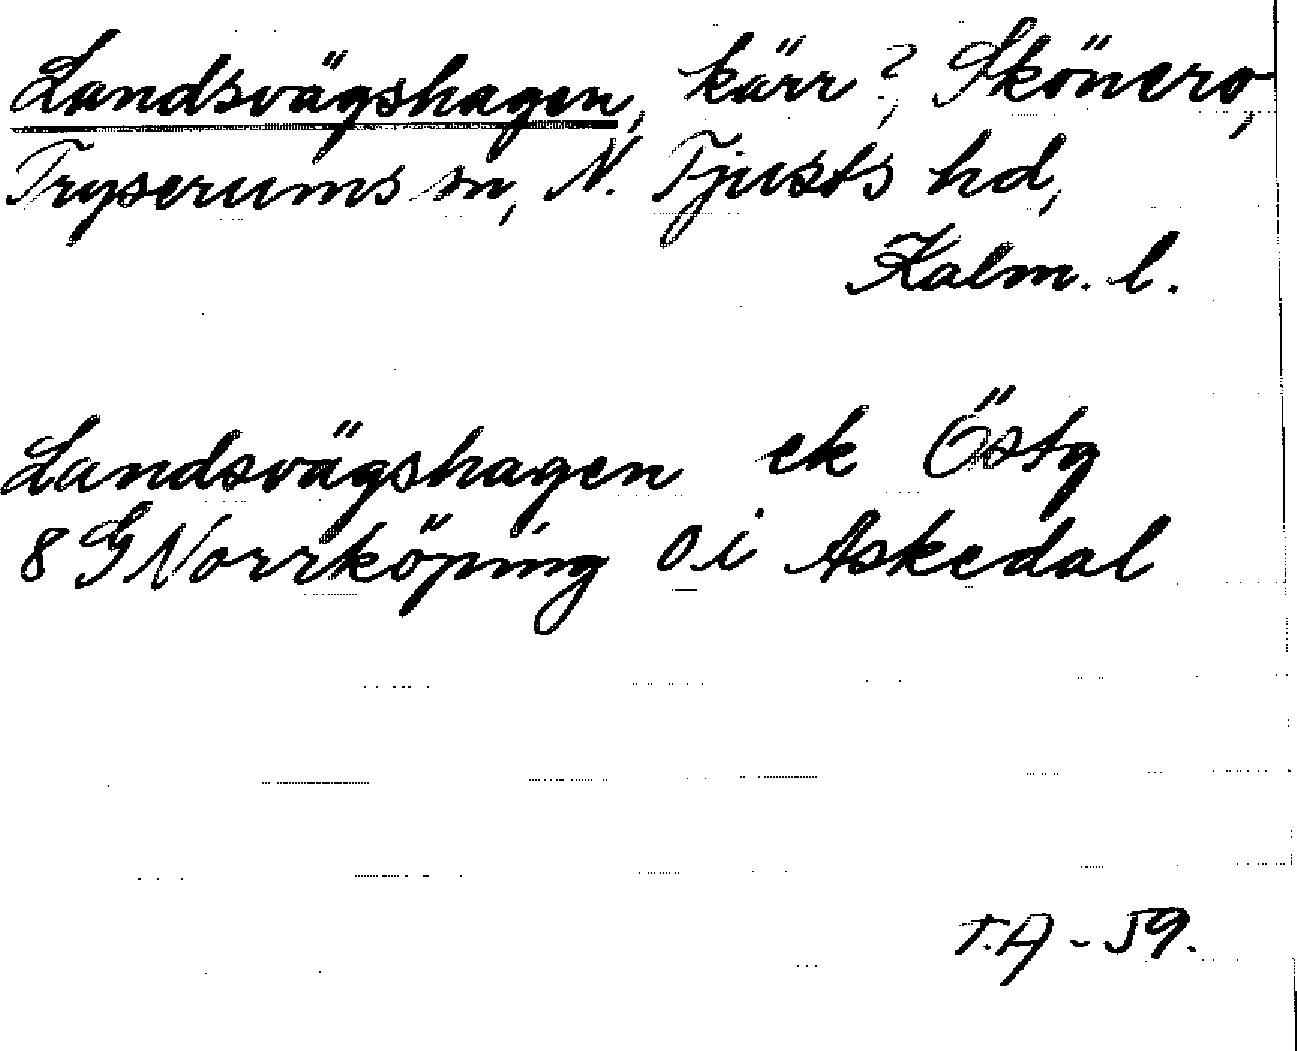 Landsvägshagen, kärr?, Skönero,
Tryserums sn, N. Tjusts hd,
Kalm. l.
Landsvägshagen ek Östg
8 G Norrköping o.i Askedal
T.A - 59.